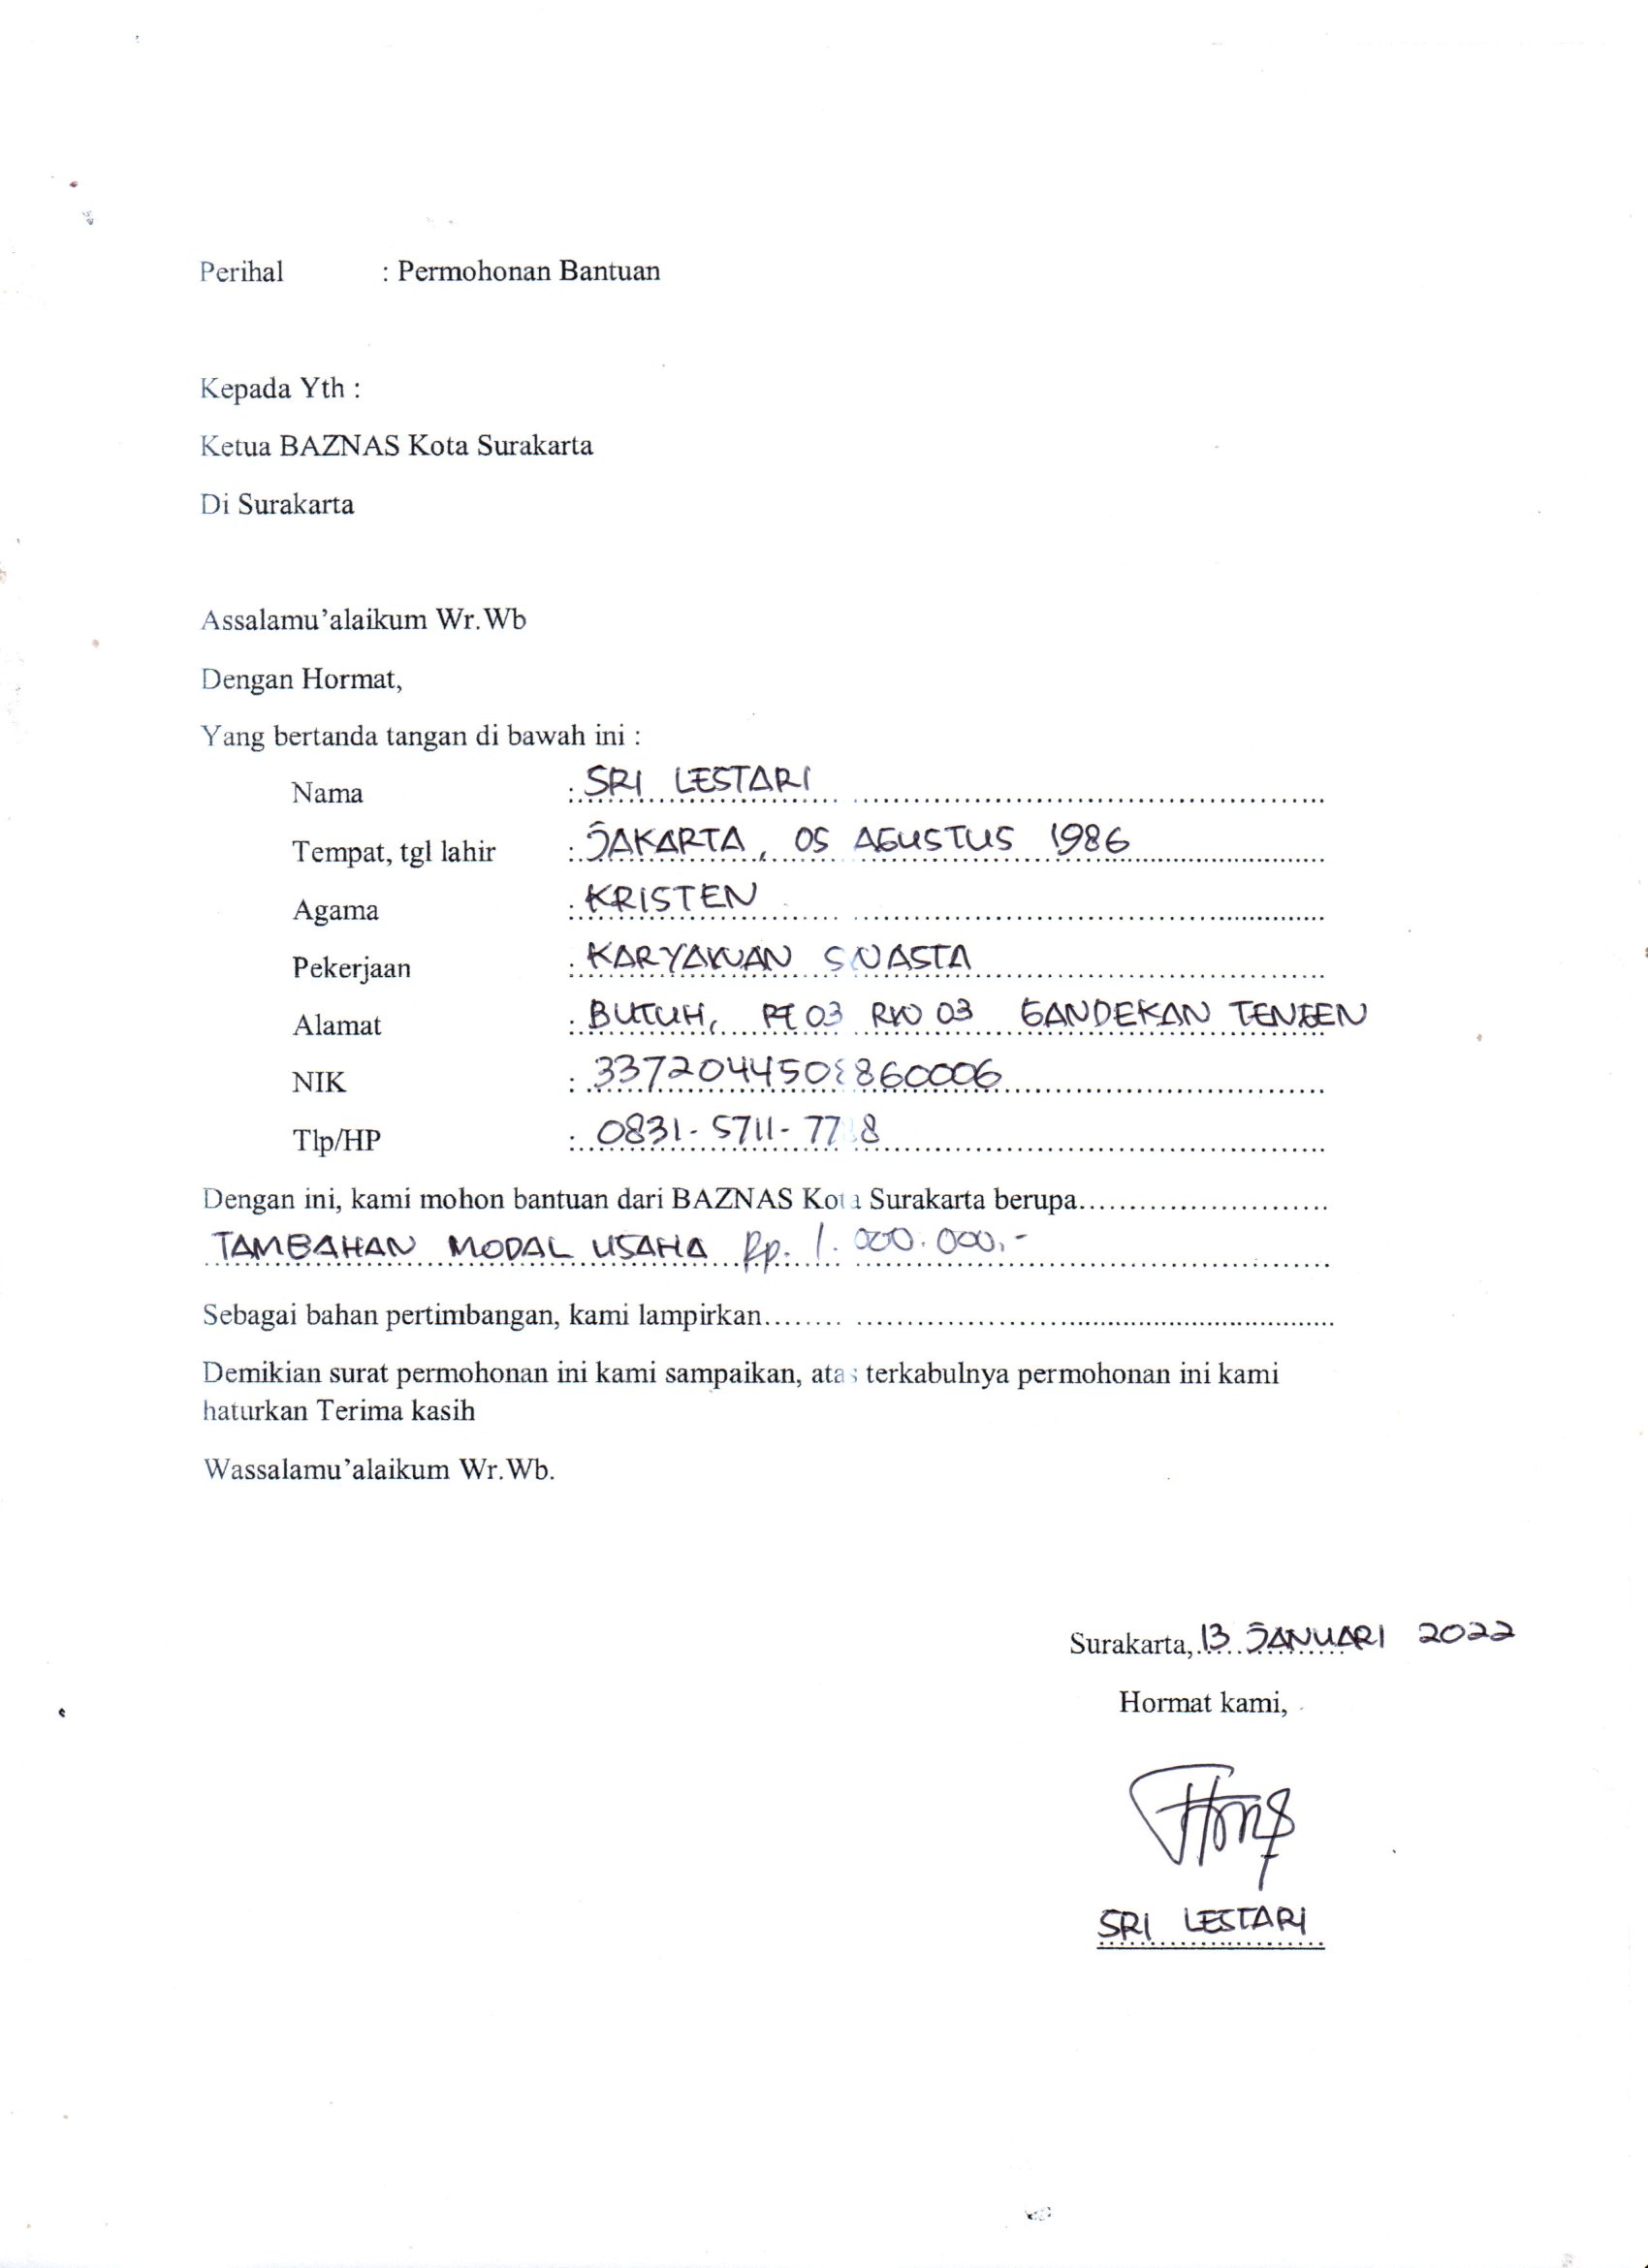 Perihal : Permohonan Bantuan
Kepada Yth :
Ketua BAZNAS Kota Surakarta
Di Surakarta
Assalamu'alaikum Wr.Wb
Dengan Hormat,
Yang bertanda tangan di bawah ini :
Nama : SRI LESTARI
Tempat, tgl lahir : JAKARTA, 05 AGUSTUS 1986
Agama : KRISTEN
Pekerjaan : KARYAWAN SWASTA
Alamat : BUTUH, RT 03 RW 03 GANDEKAN TENGEN
NIK :
Tlp/HP : 0831-5711-
Dengan ini, kami mohon bantuan dari BAZNAS Kota Surakarta berupa
TAMBAHAN MODAL USAHA Rp. 1.000.000,-
Sebagai bahan pertimbangan, kami lampirkan
Demikian surat permohonan ini kami sampaikan, atas terkabulnya permohonan ini kami
haturkan Terima kasih
Wassalamu'alaikum Wr.Wb.
Surakarta, 13 JANUARI 2022
Hormat kami,
SRI LESTARI